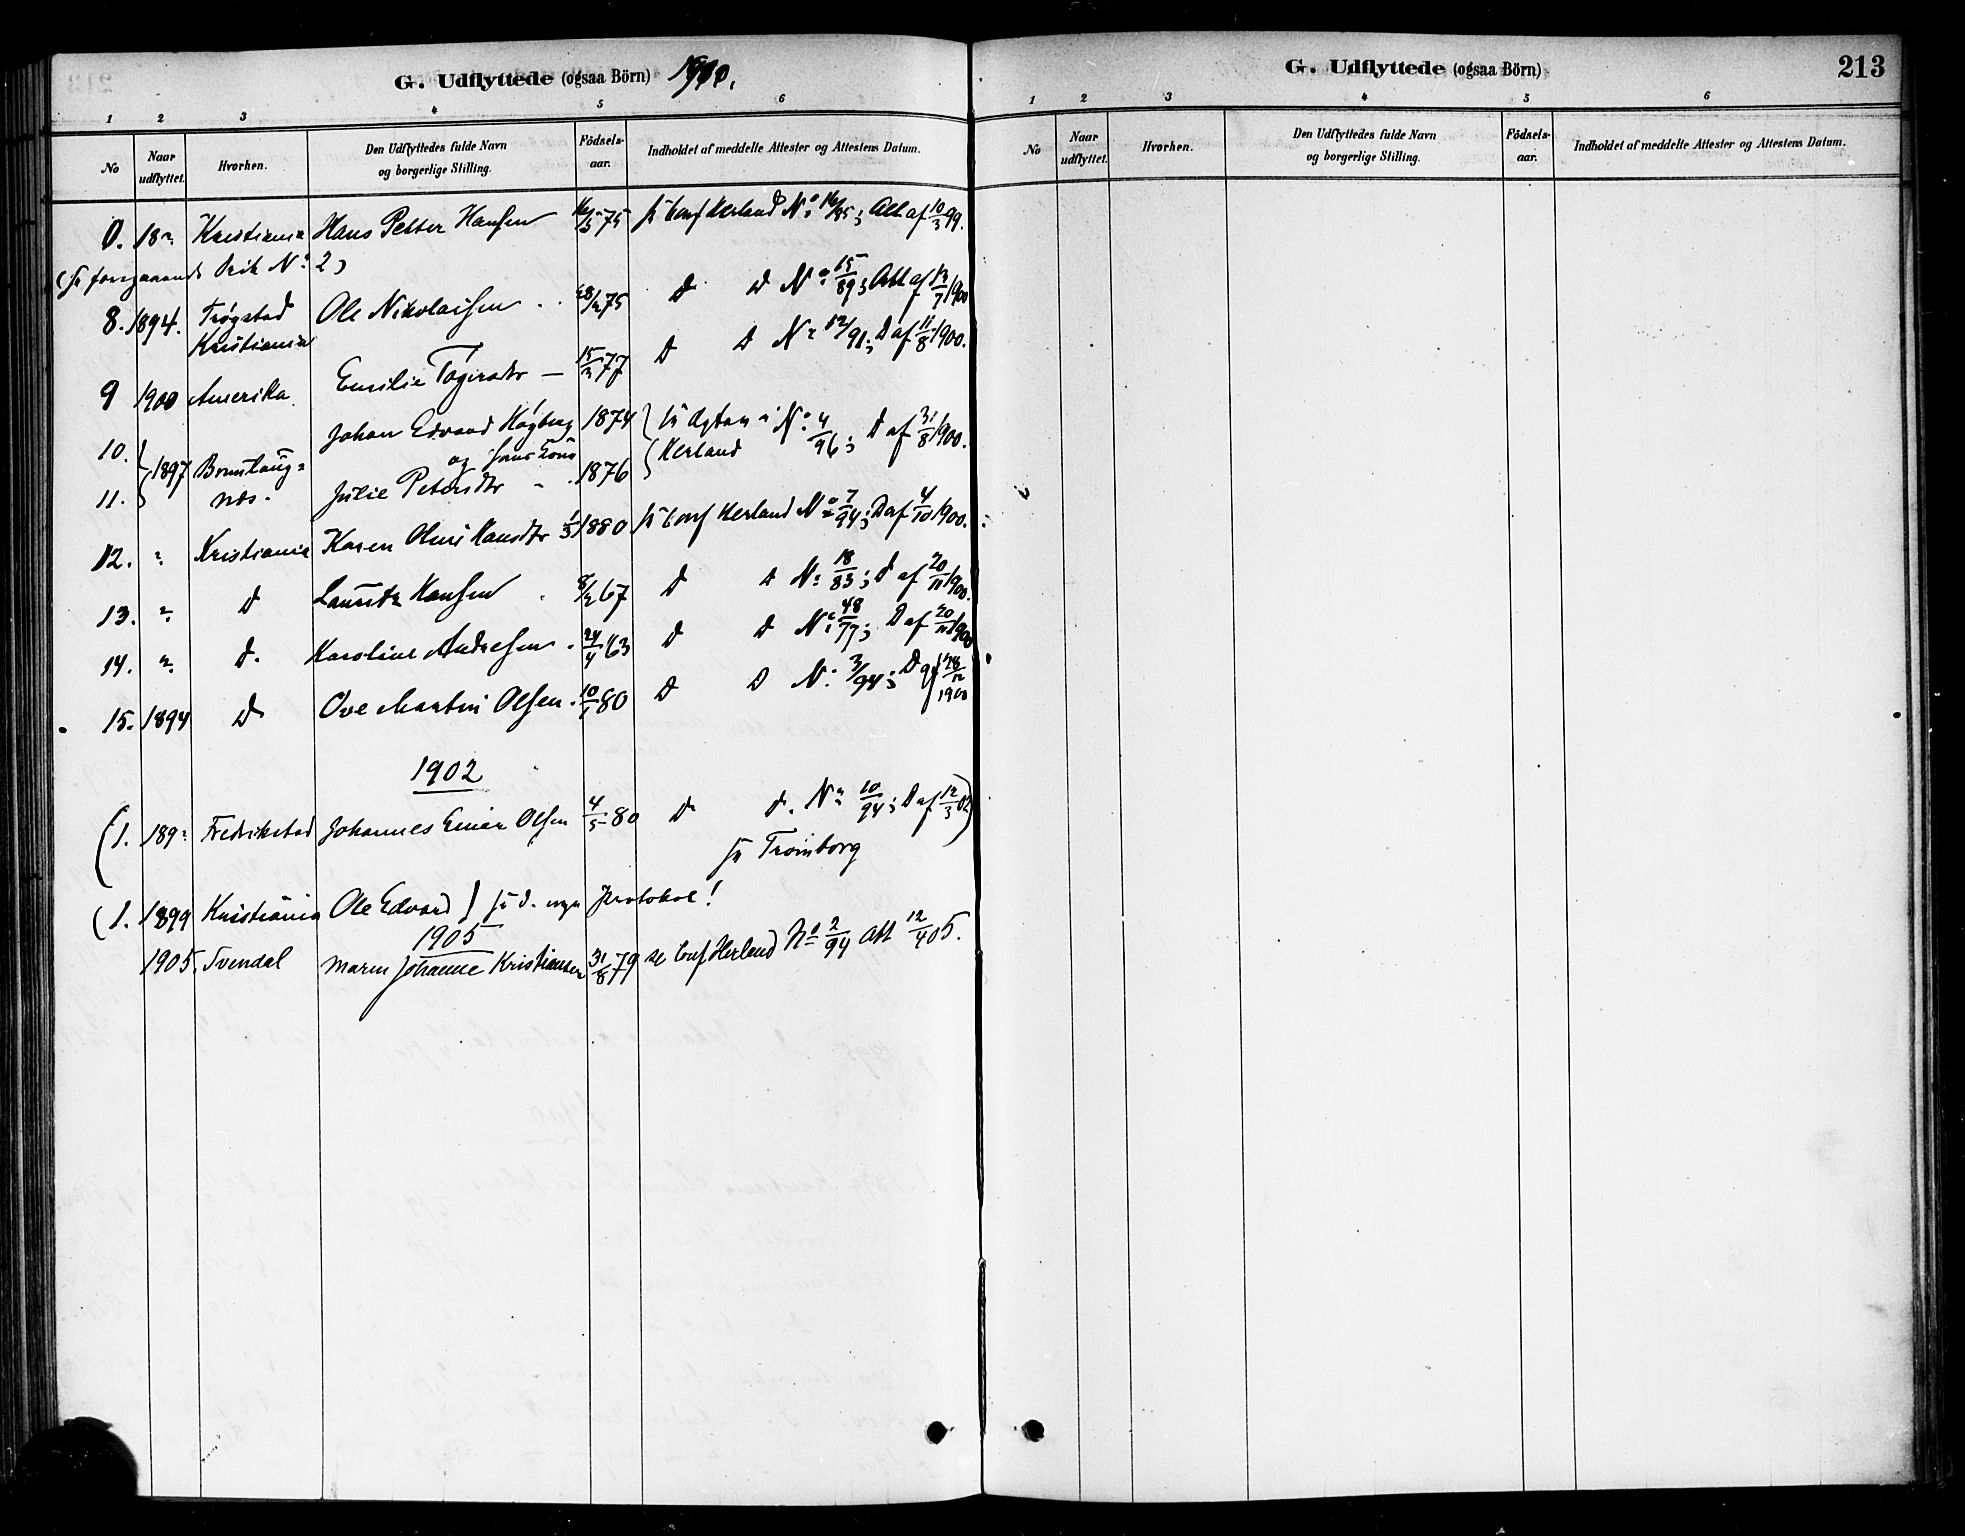 G. Udflyttede (ogsaa Börn) 1900.
1 2 3 4 5 6
No
Naar udflyttet.
Hvorhen.
Den Udflyttedes fulde Navn og borgerlige Stilling.
Födsels-aar.
Indholdet af meddelte Attester og Attestens Datum.
0. Kristiania Hans Petter Hansen 16/3 75 Conf Herland No 16/95; Att af 10/3 99.
No 2)
8. 1894. Trøgstad Kristiania Ole Nikolaisen 28/2 75 D D No 15/89; Att af 13/7 1900
9 1900 Amerika Emilie D D No 12/91; D af 11/8 1900.
10. Johan Edvard Høgberg 1874 No 4/96; D af 31/8 1900.
og
Herland
11. 1897 Julie Petersdtr 1876
12. " Kristiania Karen Hansdtr 1/3 1880 Conf Herland No 7/94; D af 4/10 1900.
13. " D Lauritz Hansen 8/2 67 D D No 18/83; D af 20/11 1900.
14. " D. Karoline Andresen 24/4 63 D D No 48/77; D af 20/11 1900
15. 1894 D Ove Martin Olsen 10/1 80 D D No 3/94; D af 28/12 1900
1902
(1. Fredrikstad Johannes Einar Olsen 4/5 80 D D. No 10/94; D af 12/3 02)
Trømborg
(1. 1899 Kristiania Ole Edvard) Protokol!
1905
1905. Svendal Maren Johanne Kristiansen 31/8 79 se Conf Herland No 2/94 Att 12/4 05.
G. Udflyttede (ogsaa Börn)
213
1 2 3 4 5 6
No
Naar udflyttet.
Hvorhen.
Den Udflyttedes fulde Navn og borgerlige Stilling.
Födsels-aar.
Indholdet af meddelte Attester og Attestens Datum.